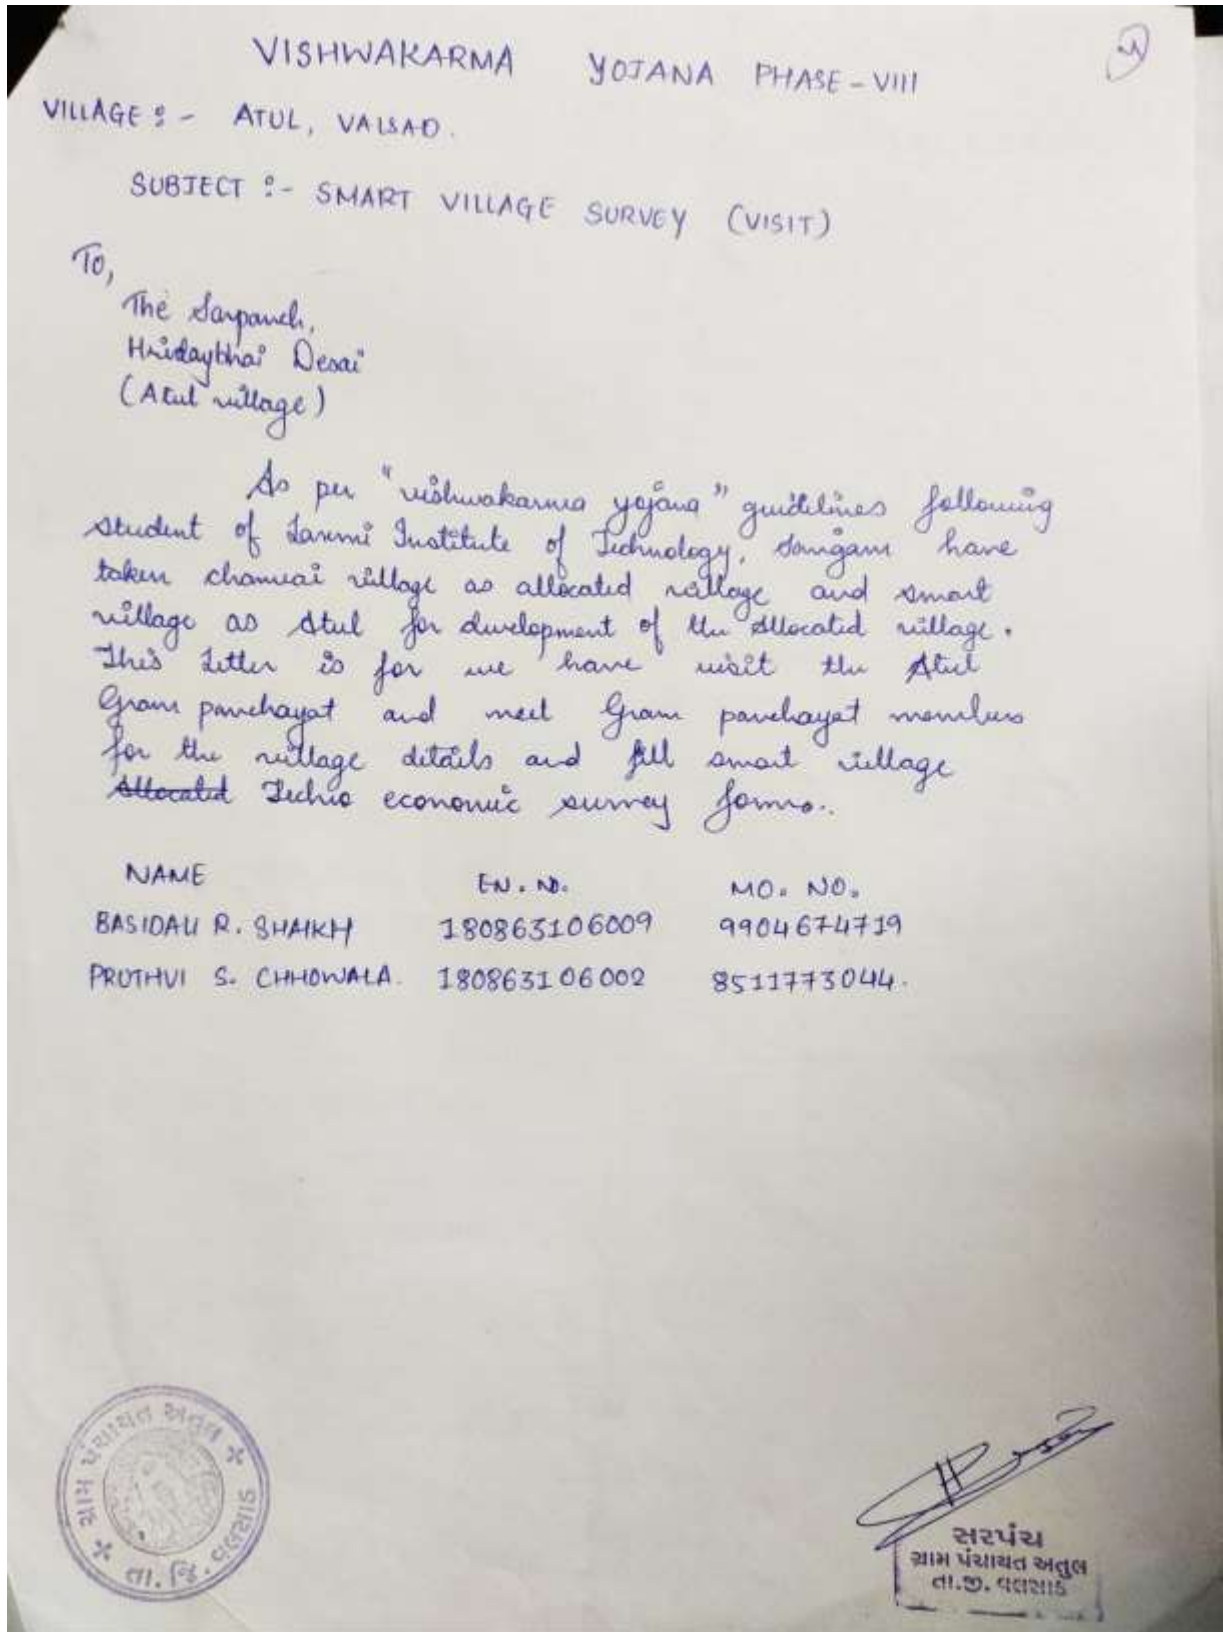 VISHWAKARMA YOJANA PHASE-VIII
VILLAGE :- ATUL, VALSAD.
SUBJECT :- SMART VILLAGE SURVEY (VISIT)
To,
The Sarpanch,
Hridaybhai Desai
(Atul village)
As per "vishwakarma yojana" guidelines following
student of Laxmi Institute of Technology, Sarigam have
taken chanvai village as allocated village and smart
village as Atul for development of the Allocated village.
This Letter is for we have visit the Atul
Gram panchayat and meet Gram panchayat members
for the village details and fill smart village
Allocated Techno economic survey forms.
NAME EN. NO. MO. NO.
BASIDALI R. SHAIKH 180863106009 9904674719
PRUTHVI S. CHHOWALA. 180863106002 8511773044.
ગ્રામ પંચાયત અતુલ
તા. જિ. વલસાડ
સરપંચ
ગ્રામ પંચાયત અતુલ
તા.જી. વલસાડ